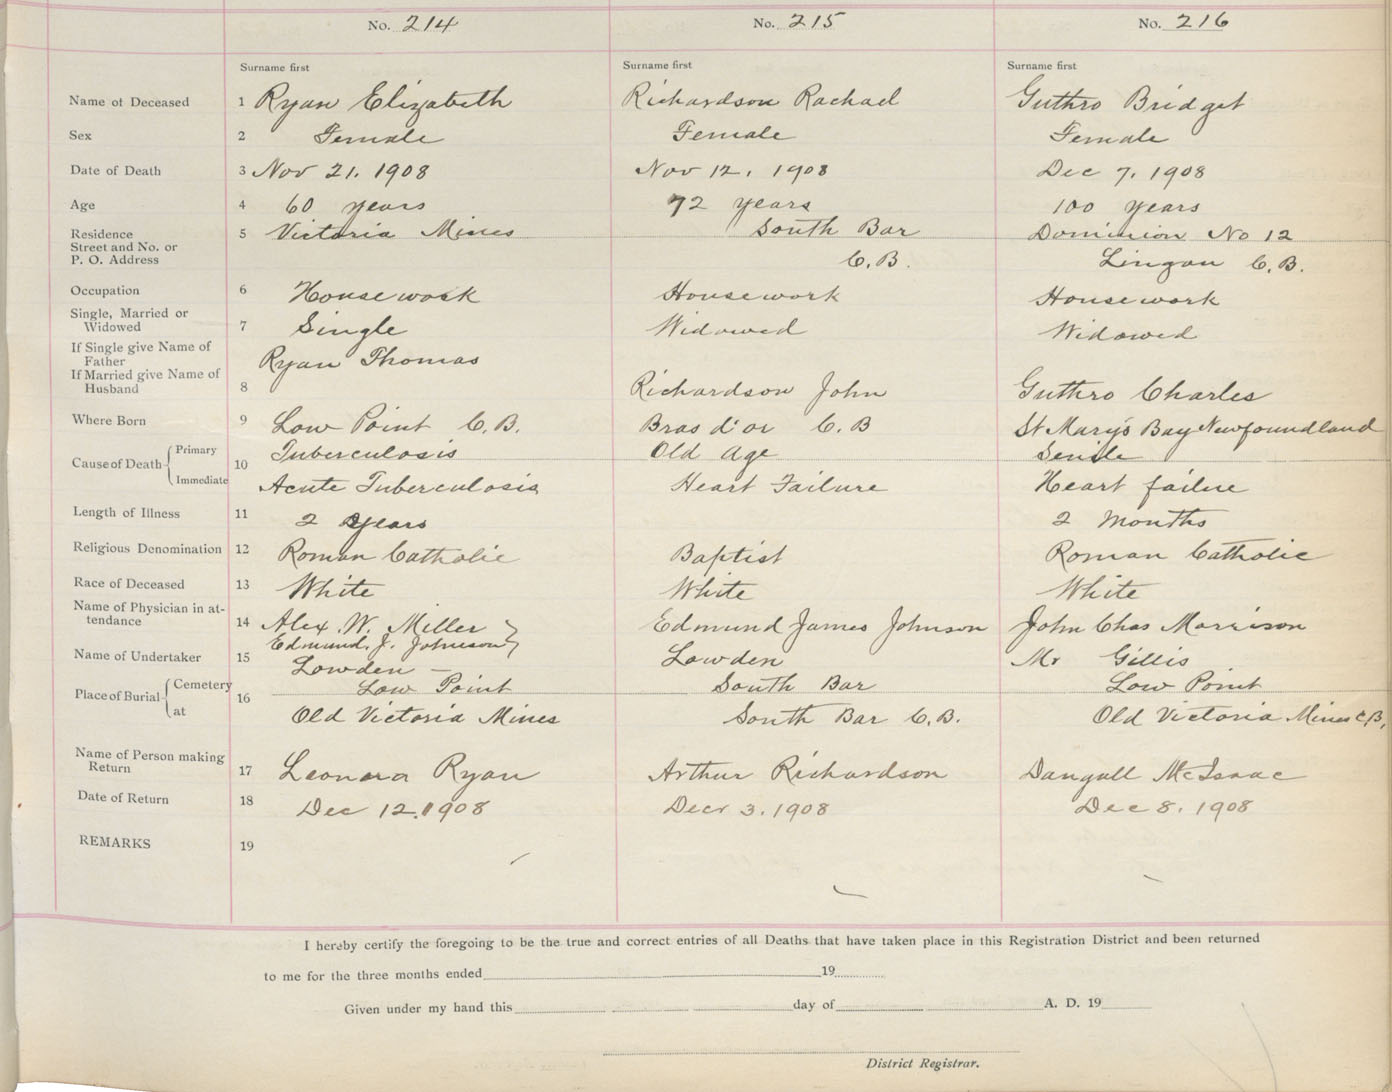 No. 214 No. 215 No. 216
Surname first Surname first Surname first
Name of Deceased 1 Ryan Elizabeth Richardson Rachael Guthro Bridget
Sex 2 Female Female Female
Date of Death 3 Nov 21. 1908 Nov 12, 1908 Dec 7, 1908
Age 4 60 years 72 years 100 years
Residence 5 Victoria Mines South Bar Dominion No 12
Street and No. or
P. O. Address C.B. Lingan C.B.
Occupation 6 Housework Housework Housework
Single, Married or
Widowed 7 Single Widowed Widowed
If Single give Name of
Father Ryan Thomas
If Married give Name of
Husband 8 Richardson John Guthro Charles
Where Born 9 Low Point C.B. Bras d'or C.B St Mary's Bay Newfoundland
Cause of Death Primary Tuberculosis Old Age Senile
10
Immediate Acute Tuberculosis Heart Failure Heart failue
Length of Illness 11 2 years 2 months
Religious Denomination 12 Roman Catholic Baptist Roman Catholic
Race of Deceased 13 White White White
Name of Physician in at-
tendance 14 Alex. W. Miller Edmund James Johnson John Chas Morrison
Edmund. J. Johnson
Name of Undertaker 15 Lowden — Lowden Mr Gillis
Place of Burial Cemetery 16 Low Point South Bar Low Point
at Old Victoria Mines South Bar C.B. Old Victoria Mines C.B.
Name of Person making
Return 17 Leonora Ryan Arthur Richardson Dangall McIsaac
Date of Return 18 Dec 12. 1908 Decr 3. 1908 Dec 8. 1908
REMARKS 19
I hereby certify the foregoing to be the true and correct entries of all Deaths that have taken place in this Registration District and been returned
to me for the three months ended 19
Given under my hand this day of A. D. 19
District Registrar.